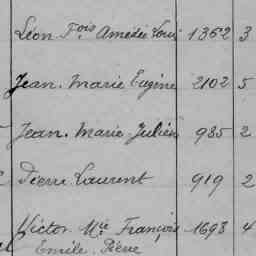 Léon Fois Amédée Louis 1362 3
Jean. Marie Eugène 2102 5
Jean. Marie Julien 985 2
Pierre Laurent 919 2
Victor Mie François 1693 4
Emile. Pierre